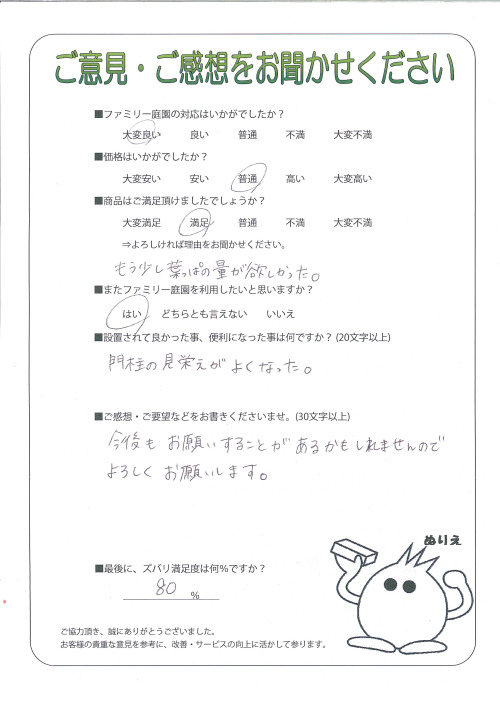 ご意見・ご感想をお聞かせください
■ファミリー庭園の対応はいかがでしたか？
大変良い 良い 普通 不満 大変不満
■価格はいかがでしたか？
大変安い 安い 普通 高い 大変高い
■商品はご満足頂けましたでしょうか？
大変満足 満足 普通 不満 大変不満
⇒よろしければ理由をお聞かせください。
もう少し葉っぱの量が欲しかった。
■またファミリー庭園を利用したいと思いますか？
はい どちらとも言えない いいえ
■設置されて良かった事、便利になった事は何ですか？(20文字以上)
門柱の見栄えがよくなった。
■ご感想・ご要望などをお書きくださいませ。(30文字以上)
今後もお願いすることがあるかもしれませんので
よろしくお願いします。
ぬりえ
■最後に、ズバリ満足度は何％ですか？
80 ％
ご協力頂き、誠にありがとうございました。
お客様の貴重な意見を参考に、改善・サービスの向上に活かして参ります。